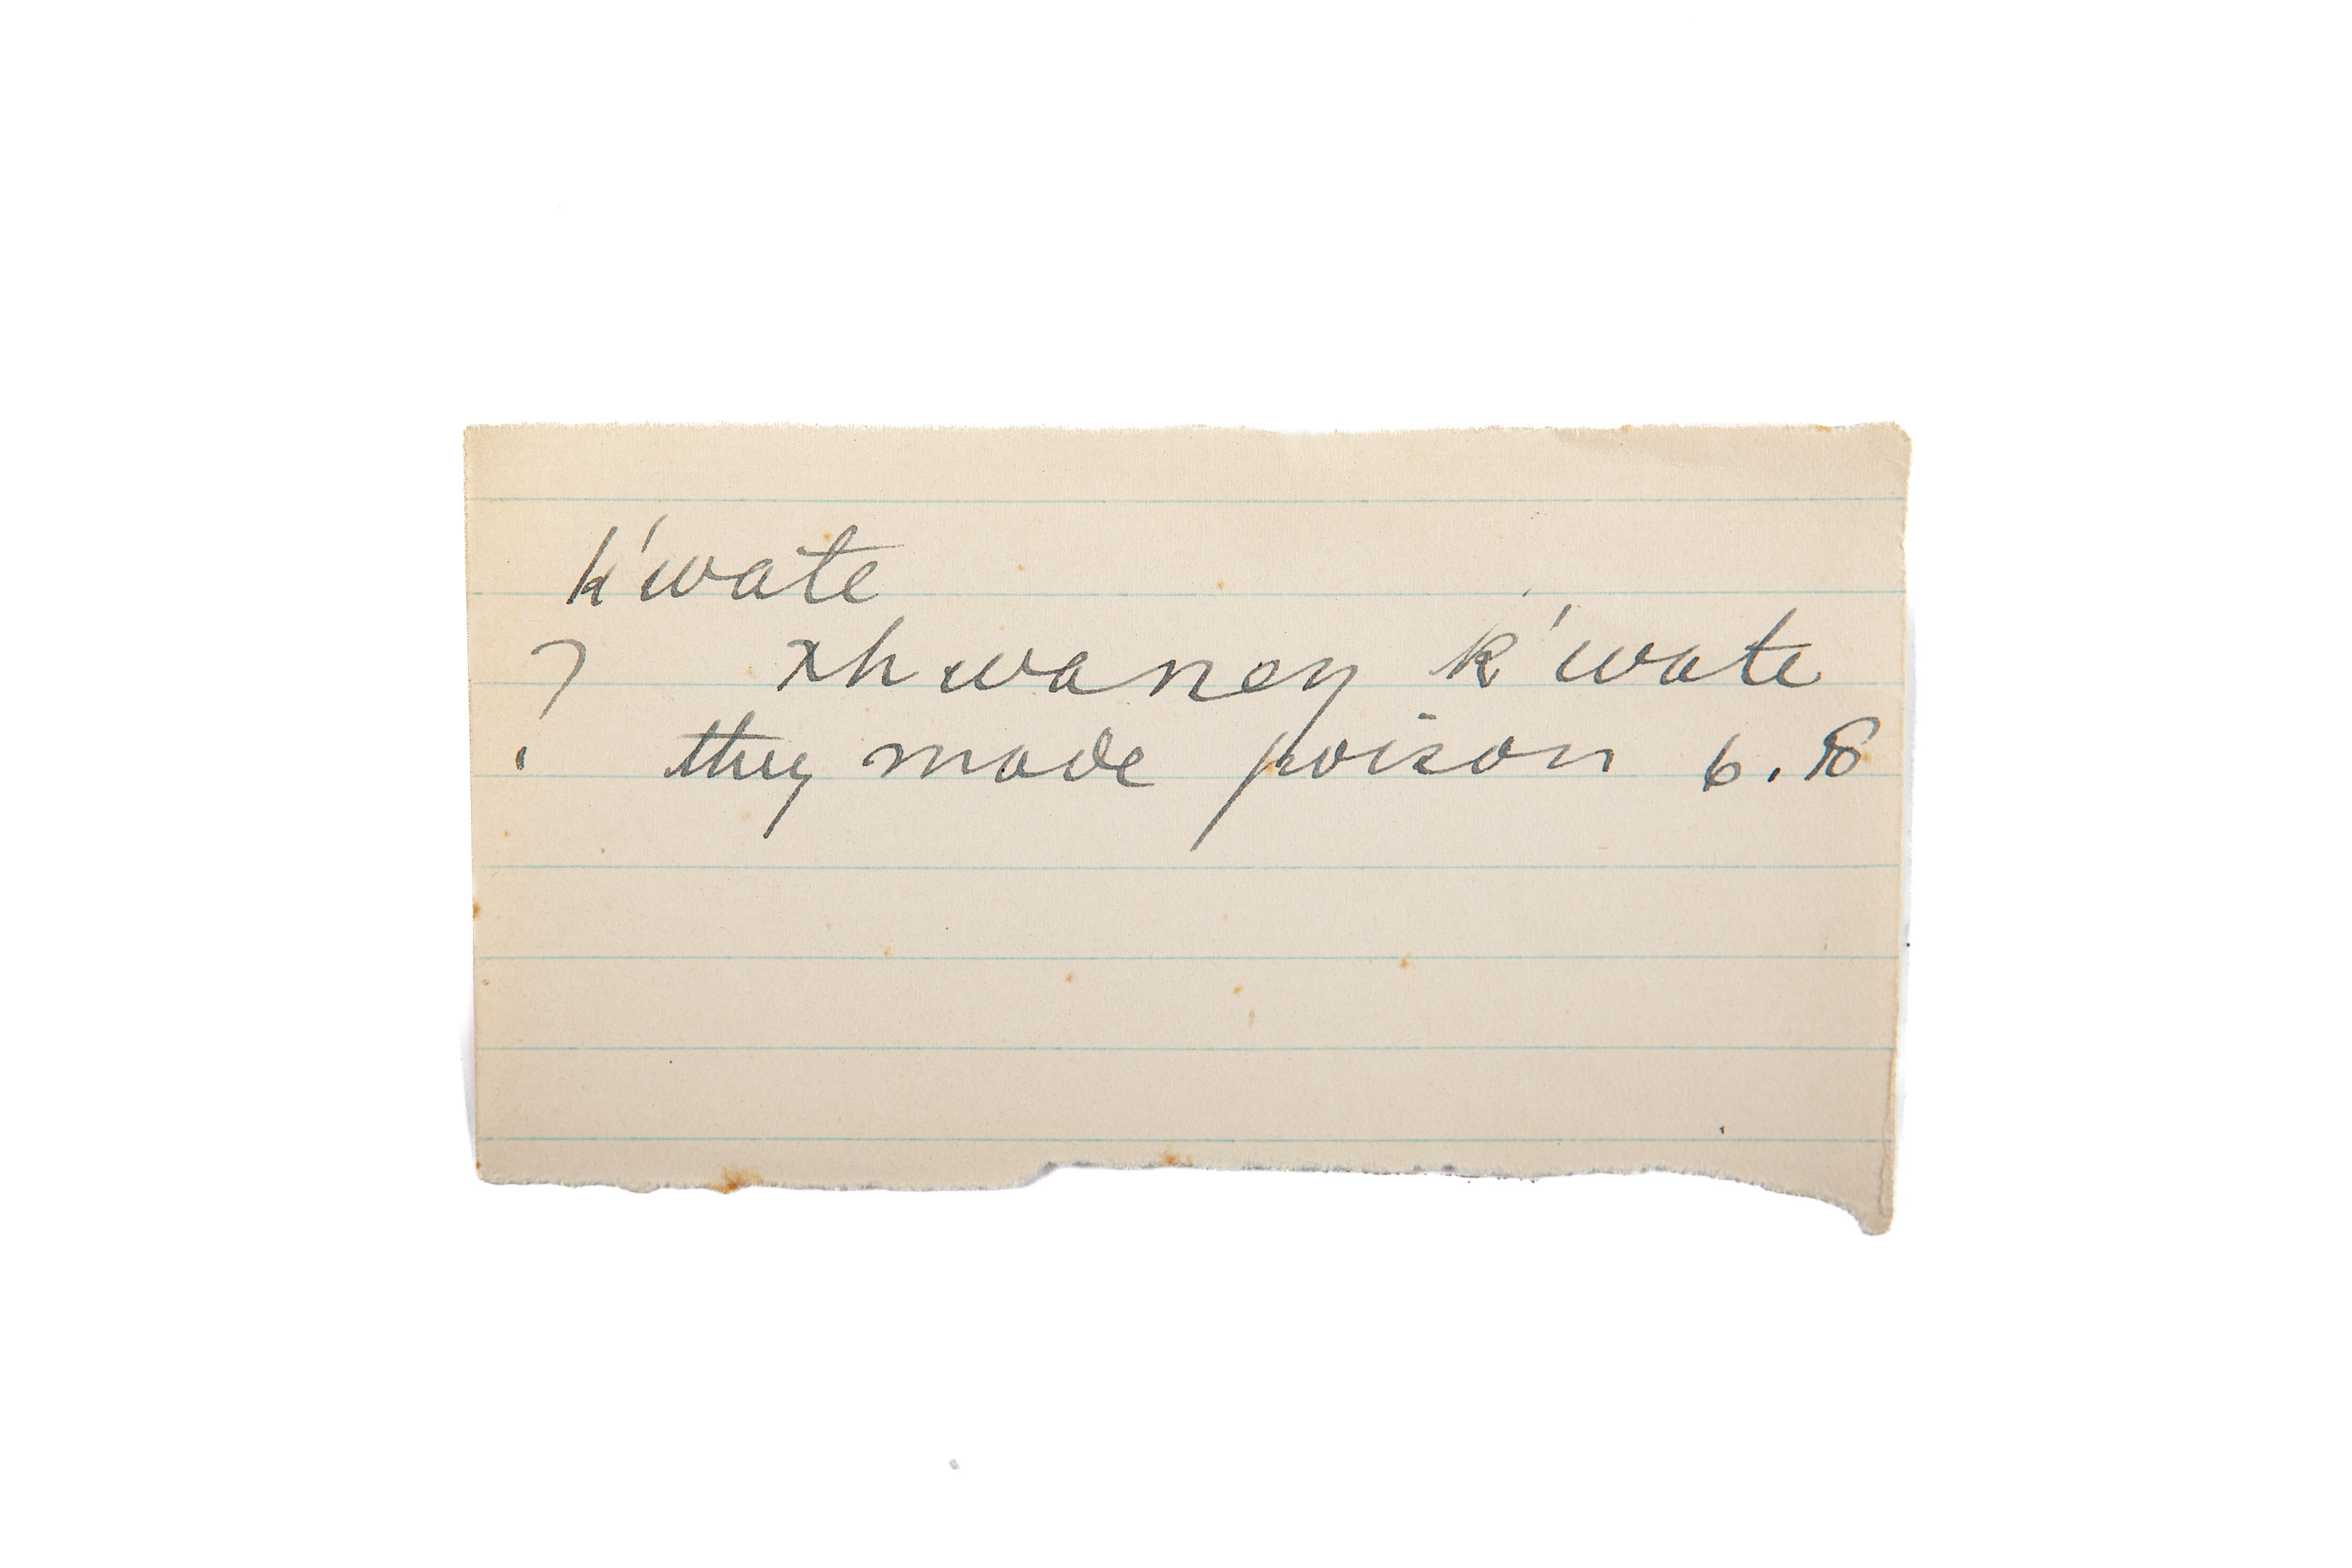 k'wate
? xhwaney k'wate
they made poison 6.8